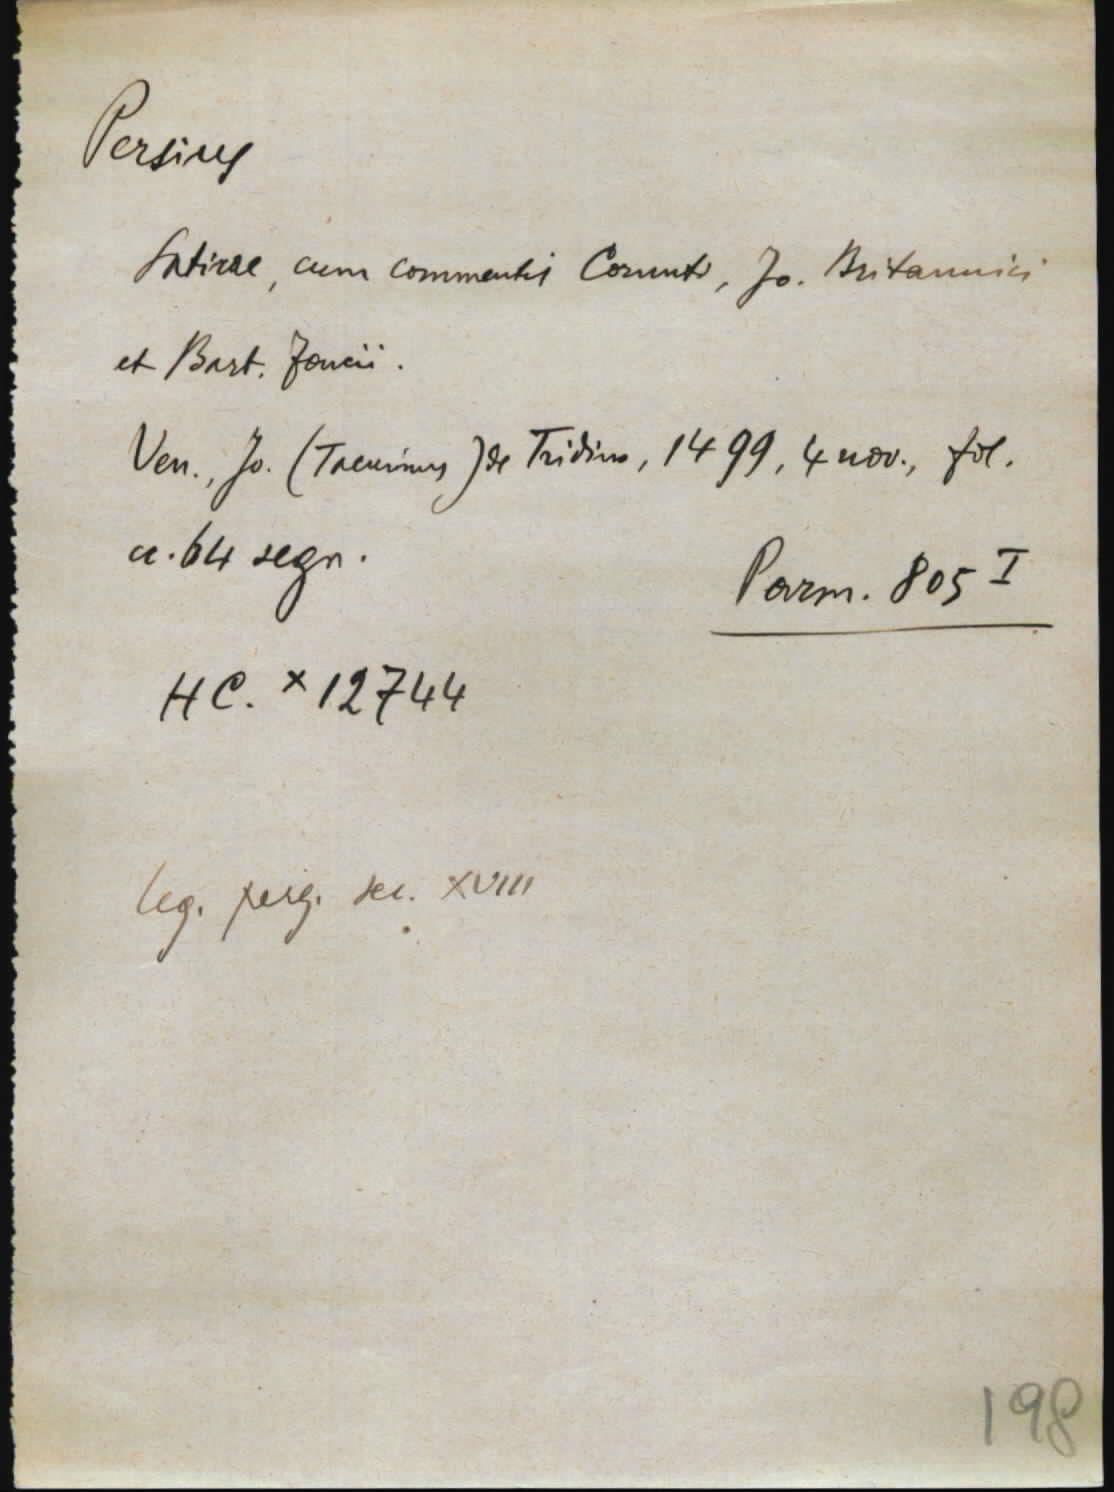 Persius
Satirae, cum commentis Cornuti, Jo. Britannici
et Bart. Foncii.
Ven., Jo. (Tacuinus) de Tridino, 1499, 4 nov., fol.
cc. 64 segn.
Parm. 805 I
HC. x 12744
leg. perg. sec. XVIII
198